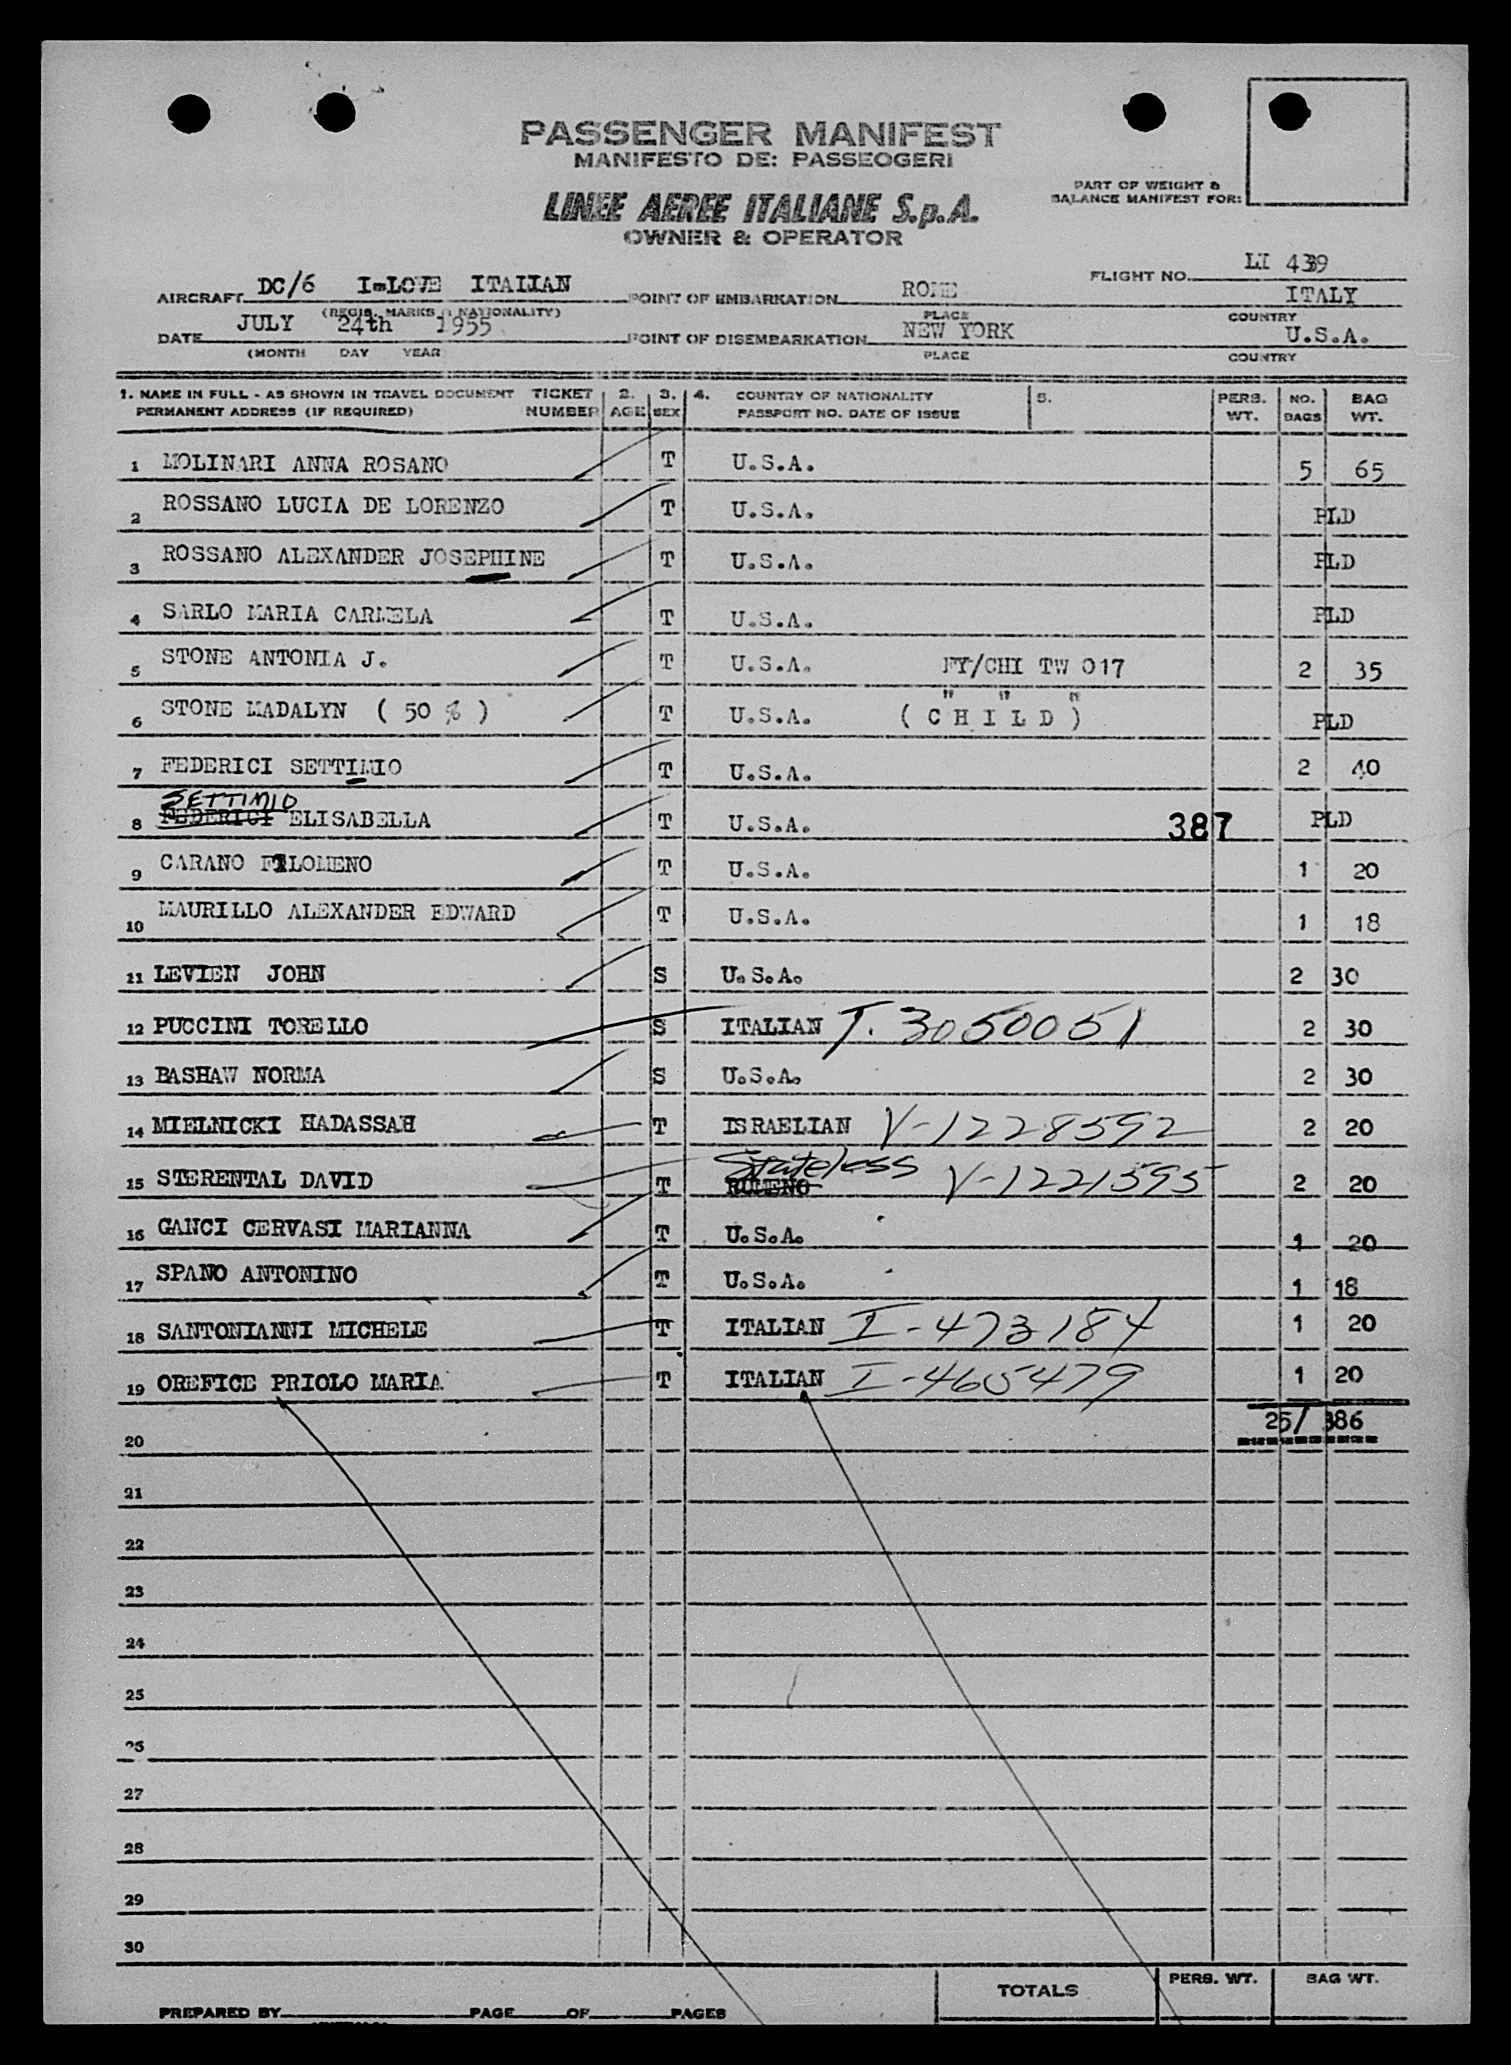 PASSENGER MANIFEST
MANIFESTO DE: PASSEOGERI
PART OF WEIGHT &
BALANCE MANIFEST FOR:
LINEE AEREE ITALIANE S.p.A.
OWNER & OPERATOR
AIRCRAFT DC/6 I-LOVE ITALIAN POINT OF EMBARKATION ROME ITALY FLIGHT NO. LI 439
(REGIS. MARKS & NATIONALITY) PLACE COUNTRY
DATE JULY 24th 1955 POINT OF DISEMBARKATION NEW YORK U.S.A.
(MONTH DAY YEAR PLACE COUNTRY
1. NAME IN FULL - AS SHOWN IN TRAVEL DOCUMENT TICKET 2. 3. 4. COUNTRY OF NATIONALITY 5. PERS. NO. BAG
PERMANENT ADDRESS (IF REQUIRED) NUMBER AGE SEX PASSPORT NO. DATE OF ISSUE WT. BAGS WT.
1 MOLINARI ANNA ROSANO T U.S.A. 5 65
2 ROSSANO LUCIA DE LORENZO T U.S.A. PLD
3 ROSSANO ALEXANDER JOSEPHINE T U.S.A. PLD
4 SARLO MARIA CARMELA T U.S.A. PLD
5 STONE ANTONIA J. T U.S.A. FY/CHI TW 017 2 35
" " "
6 STONE MADALYN ( 50 % ) T U.S.A. ( C H I L D ) PLD
7 FEDERICI SETTIMIO T U.S.A. 2 40
SETTIMIO
8 FEDERICI ELISABELLA T U.S.A. 387 PLD
9 CARANO FILOMENO T U.S.A. 1 20
10 MAURILLO ALEXANDER EDWARD T U.S.A. 1 18
11 LEVIEN JOHN S U.S.A. 2 30
12 PUCCINI TORELLO S ITALIAN T. 3050051 2 30
13 BASHAW NORMA S U.S.A. 2 30
14 MIELNICKI HADASSAH T ISRAELIAN V-1228592 2 20
Stateless
15 STERENTAL DAVID T RUMENO V-1221595 2 20
16 GANCI CERVASI MARIANNA T U.S.A. 1 20
17 SPANO ANTONINO T U.S.A. 1 18
18 SANTONIANNI MICHELE T ITALIAN I-473184 1 20
19 OREFICE PRIOLO MARIA T ITALIAN I-465479 1 20
25/ 386
20
21
22
23
24
25
26
27
28
29
30
TOTALS PERS. WT. BAG WT.
PREPARED BY PAGE OF PAGES